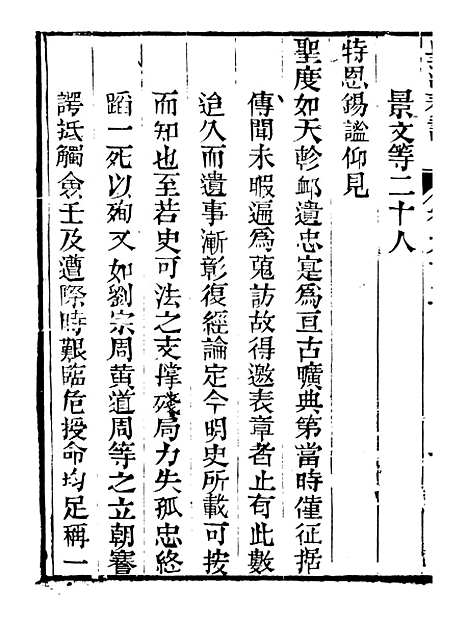 景文等二十人
特恩錫謚仰見
聖度如天軫卹遺忠寔爲亘古曠典第當時僅征据
傳聞未暇遍爲蒐訪故得邀表章者止有此數
迨久而遺事漸彰復經論定今明史所載可按
而知也至若史可法之支撑殘局力矢孤忠終
蹈一死以殉又如劉宗周黄道周等之立朝謇
諤抵觸僉壬及遭際時艱臨危授命均足稱一